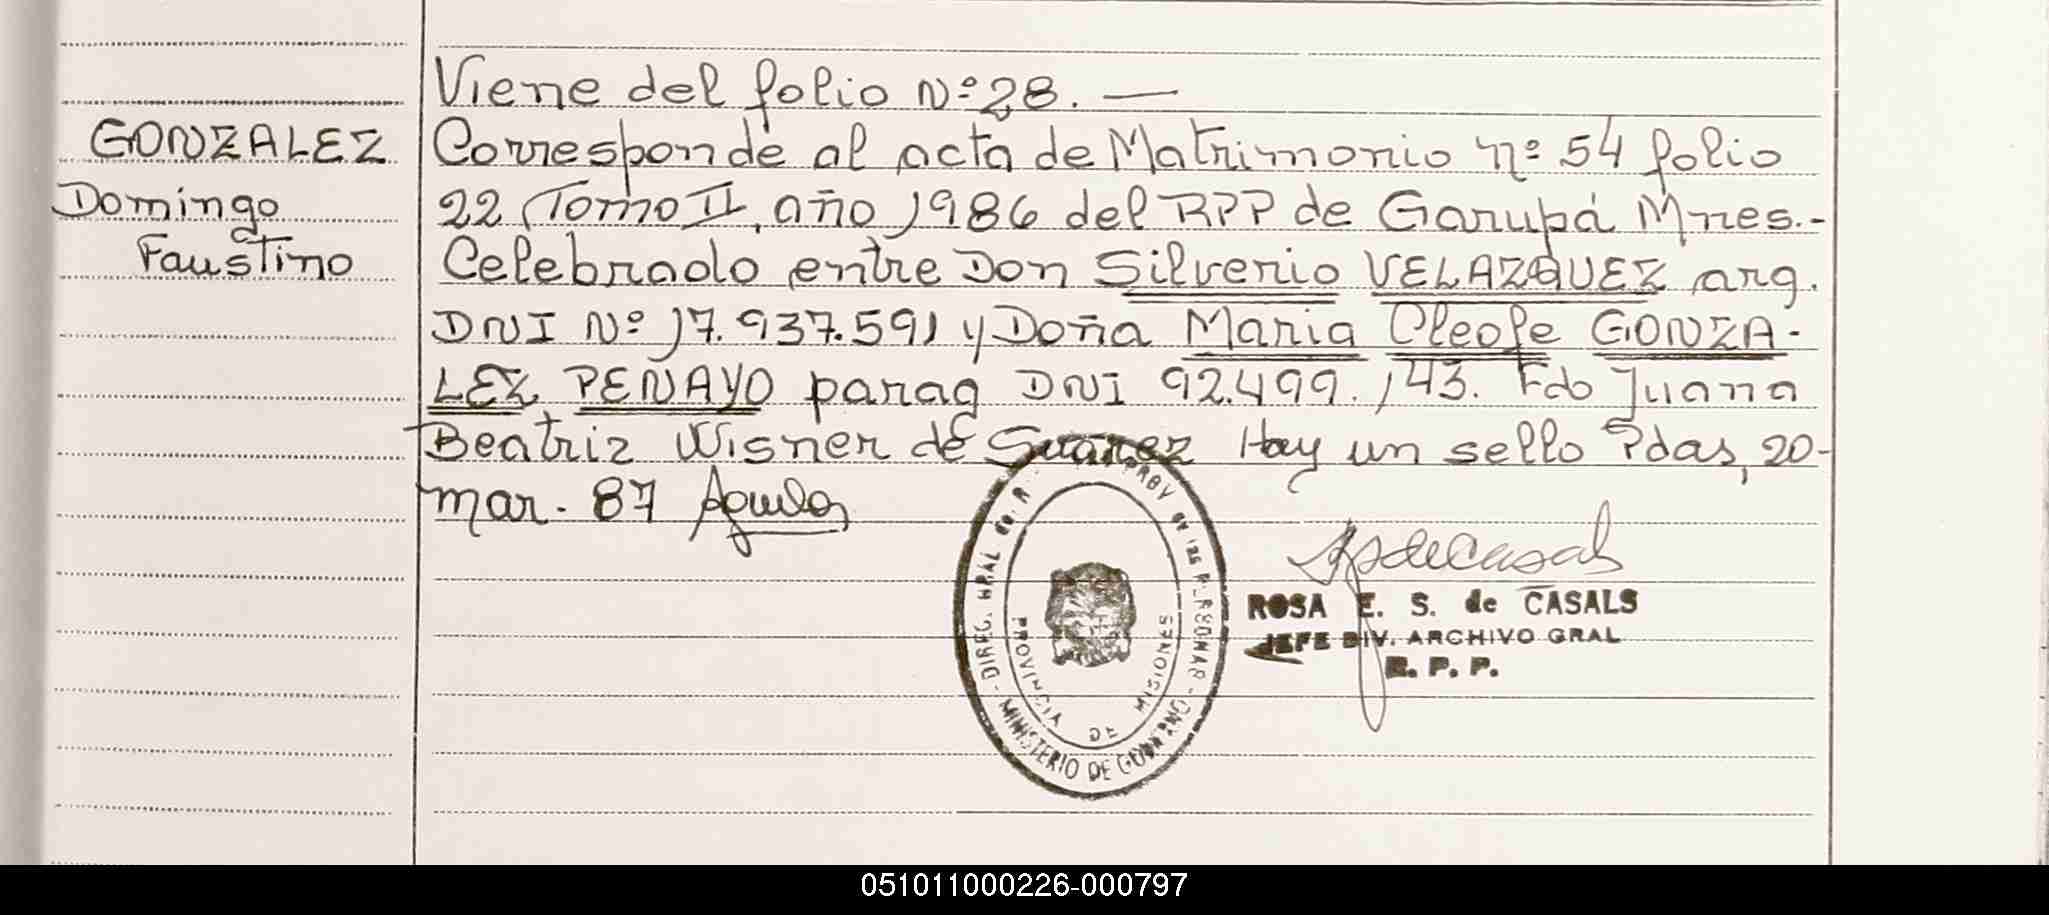 Viene del folio Nº 28. —
GONZALEZ
Domingo
Faustino
Corresponde al acta de Matrimonio nº 54 folio
22 Tomo II, año 1986 del RPP de Garupá Mnes.-
Celebrado entre Don Silverio VELAZQUEZ arg.
DNI Nº 17.937.591 y Doña Maria Cleofe GONZA-
LEZ PENAYO parag DNI 92.499.143. Fdo Juana
Beatriz Wisner de Suarez Hay un sello Pdas, 20-
mar. 87
DIREC. GRAL de R. PROV de las PERSONAS - MINISTERIO DE GOBIERNO -
PROVINCIA DE MISIONES
ROSA E. S. de CASALS
JEFE DIV. ARCHIVO GRAL
R. P. P.
051011000226-000797